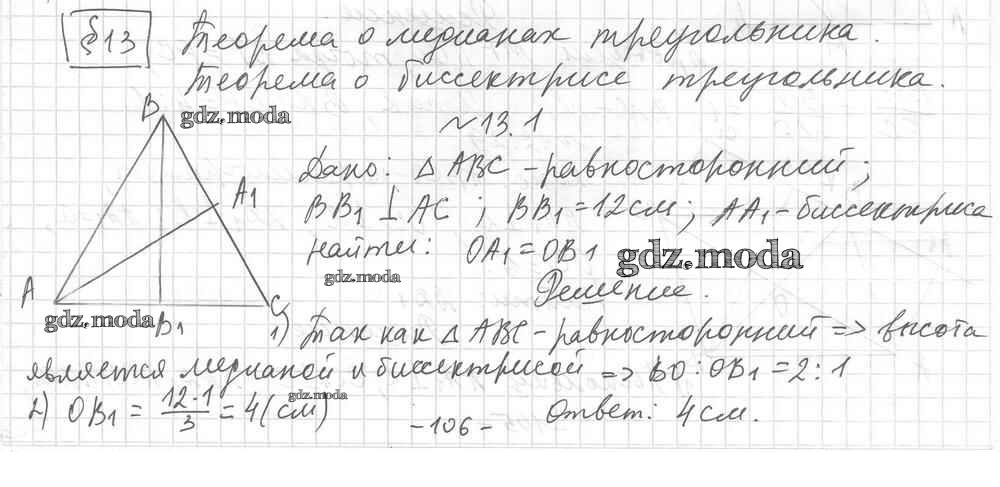 §13 Теорема о медианах треугольника.
Теорема о биссектрисе треугольника.
B gdz.moda
~13.1
Дано: △ ABC - равносторонний;
A1
BB1 ⊥ AC ; BB1 = 12 см ; AA1 - биссектриса
Найти: OA1 = OB1 gdz.moda
gdz.moda
A
Решение.
C
gdz.moda B1
1) Так как △ ABC - равносторонний => высота
является медианой и биссектрисой => BO : OB1 = 2 : 1
2) OB1 = 12·1/3 = 4 (см) gdz.moda
Ответ: 4 см.
-106-